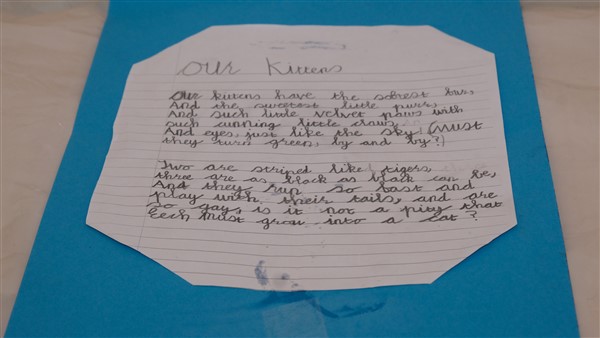 Our Kittens
Our kittens have the sofrest fur,
And the sweetest little purr,
And such little velvet paws with
such cunning little claws,
And eyes, just like the sky! (Must
they turn green, by and by?)
Two are striped like tigers,
three are as black as black can be,
And they run so fast and
play with their tails, and are
so gay, is it not a pity that
Each must grow into a cat?